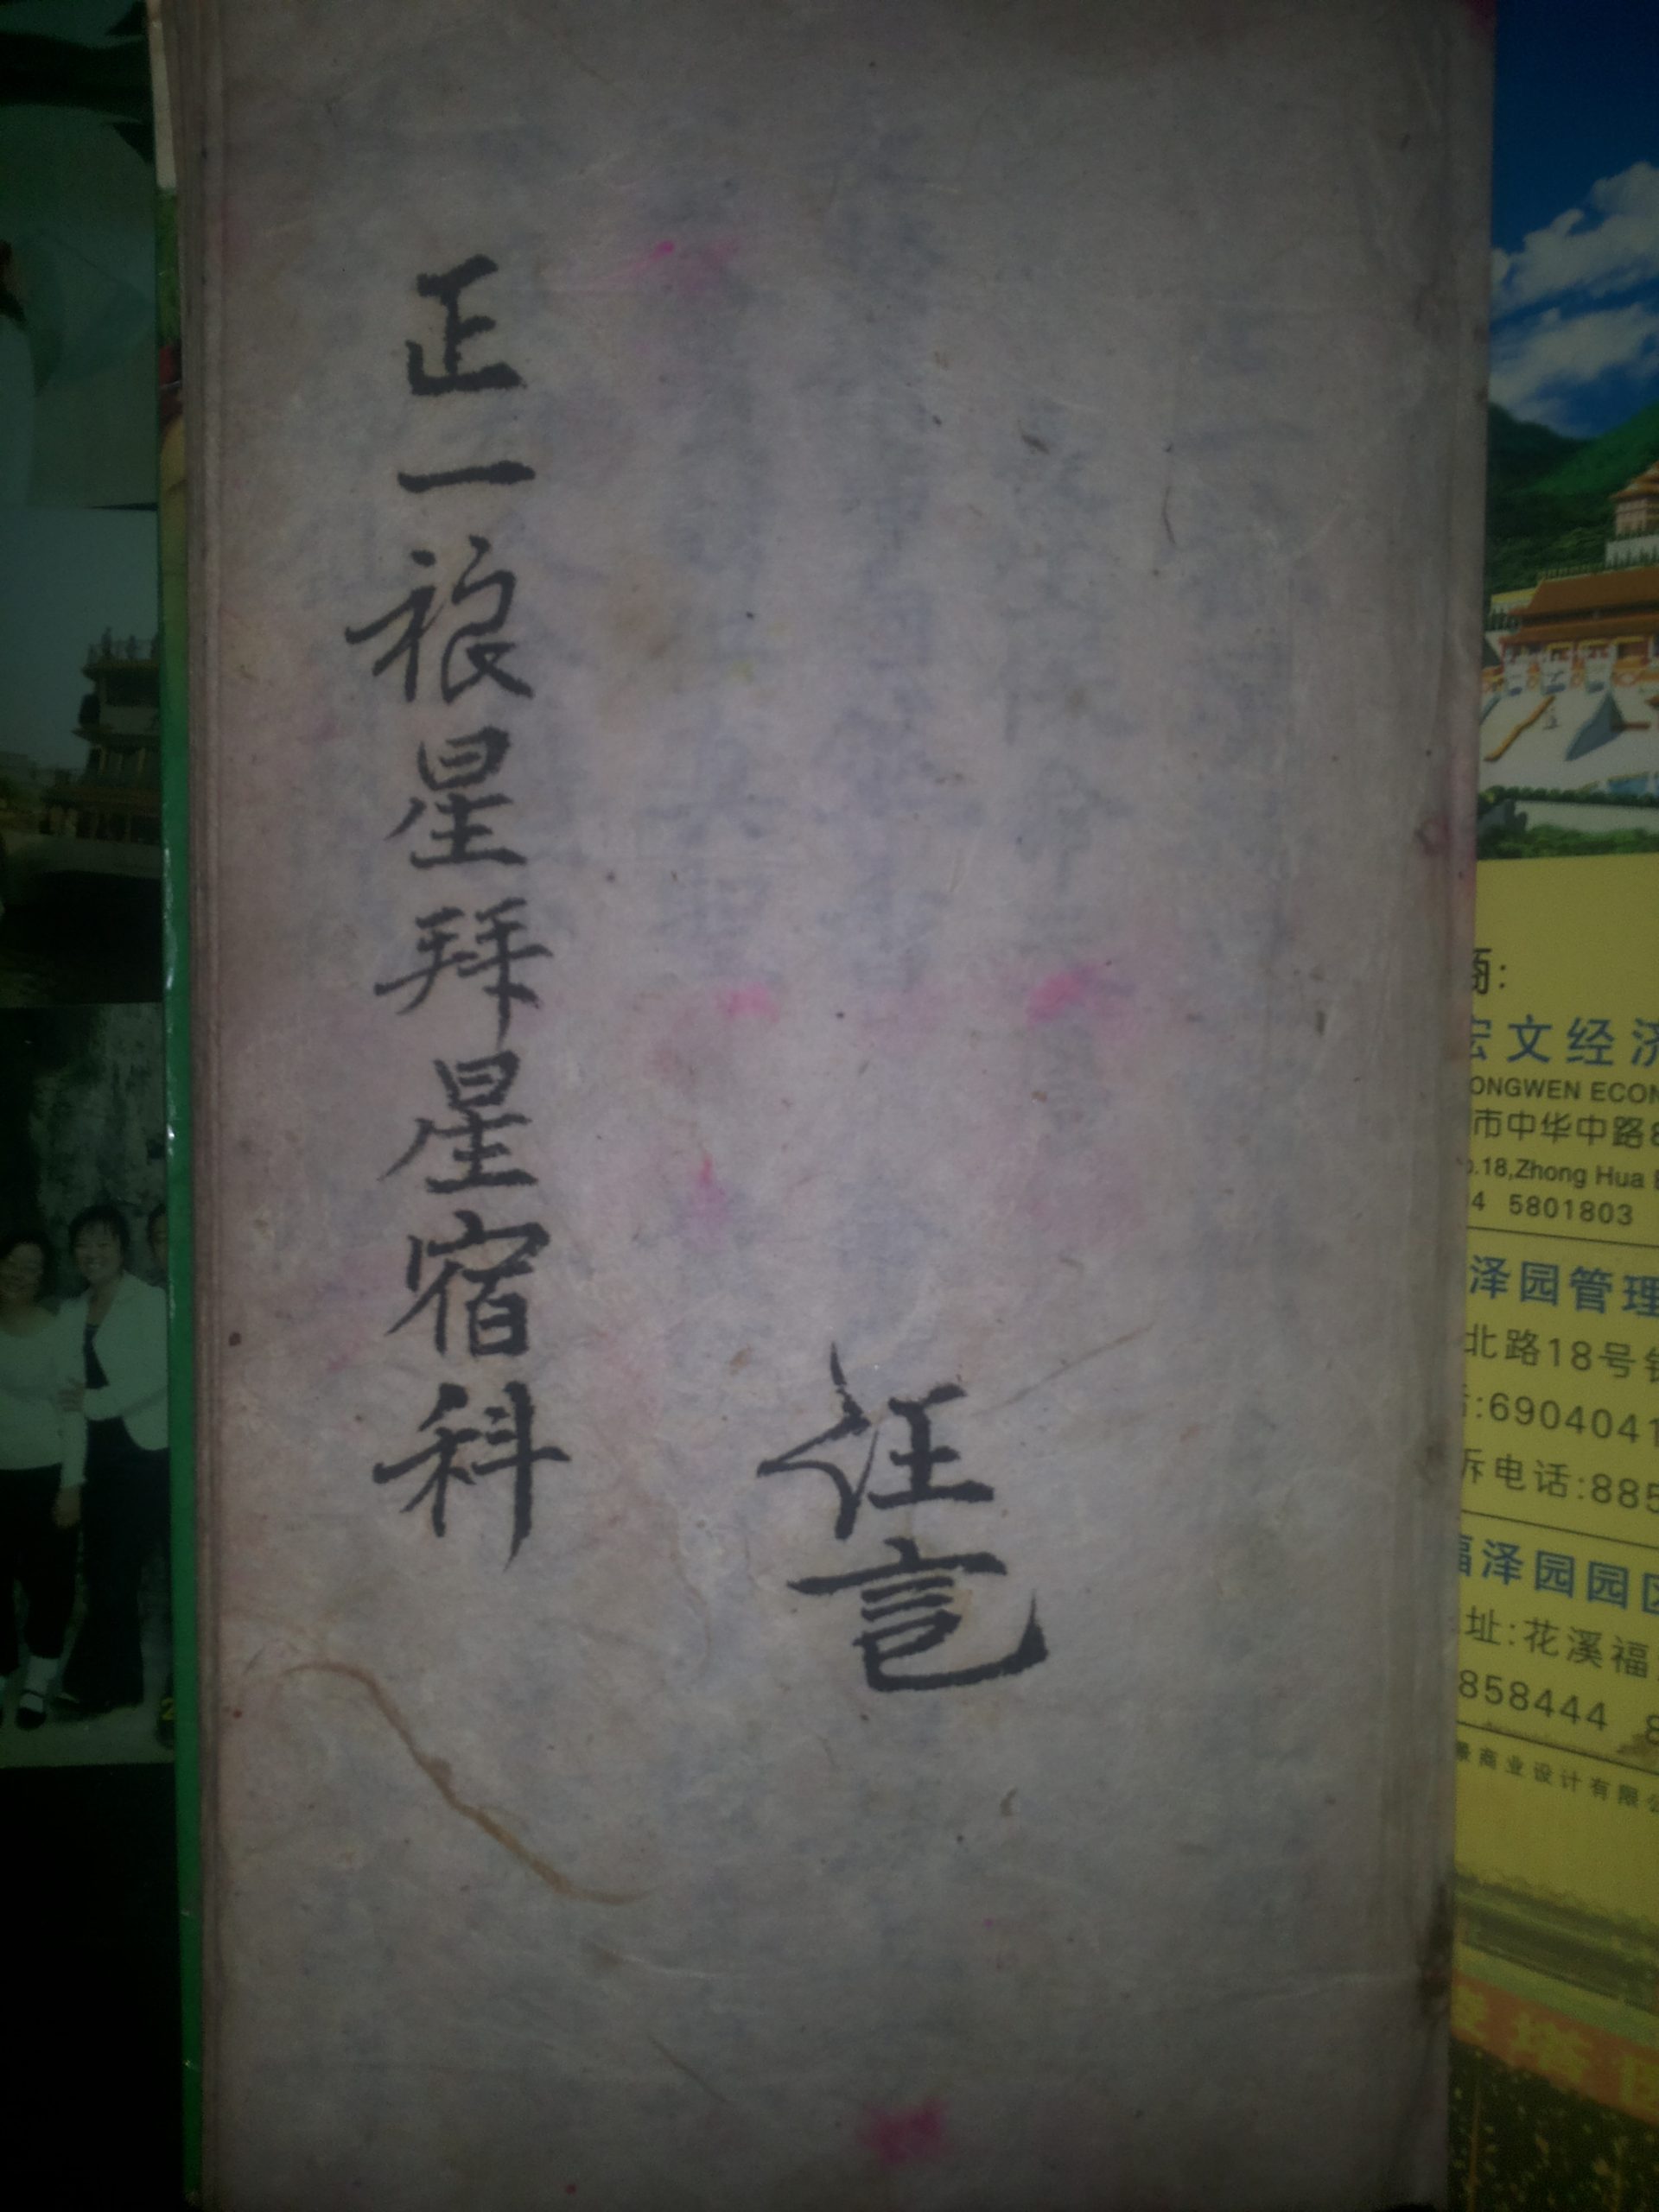 正一禳星拜星宿科
商:
宏文经济
ONGWEN ECON
市中华中路8
.18,Zhong Hua
4 5801803
泽园管理
北路18号
:6904041
诉电话:885
福泽园园区
址:花溪福
858444 8
景商业设计有限公